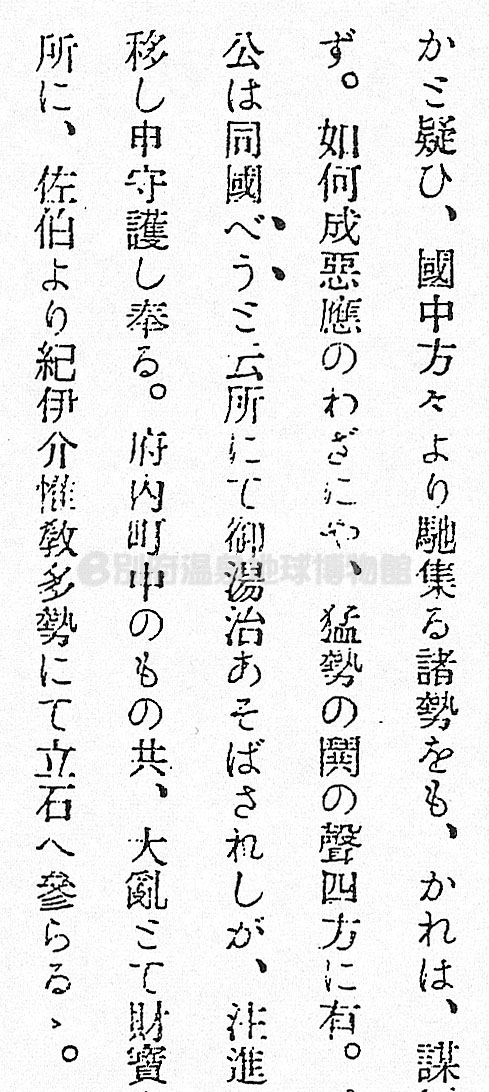 かミ疑ひ、國中方々より馳集る諸勢をも、かれは、謀
ず。如何成惡應のわざにや、猛勢の鬨の聲四方に有。
公は同國べうミ云所にて御湯治あそばされしが、注進
移し申守護し奉る。府内町中のもの共、大亂ミて財寶
所に、佐伯より紀伊介惟敎多勢にて立石へ參らるゝ。
別府温泉地球博物館